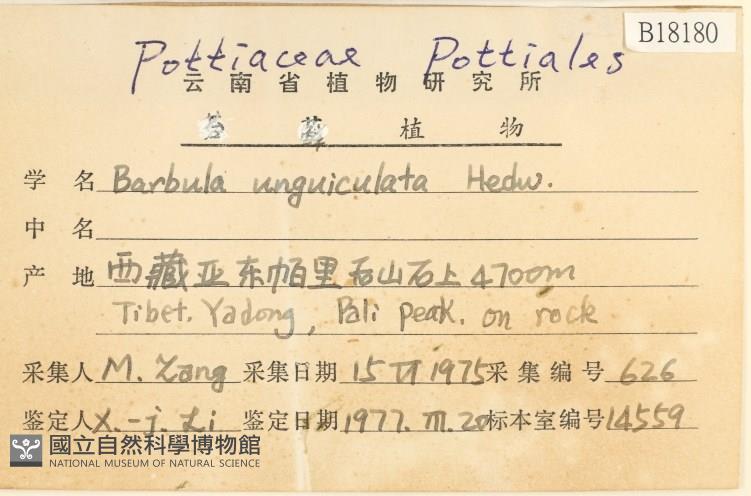 B18180
Pottiaceae Pottiales
云南省植物研究所
苔藓植物
学名 Barbula unguiculata Hedw.
中名
产地 西藏亚东帕里石山石上 4700m
Tibet. Yadong, Pali peak. on rock
采集人 M. Zang 采集日期 15 VI 1975 采集编号 626
鉴定人 X.-j. Li 鉴定日期 1977. III. 20 标本室编号 14559
國立自然科學博物館
NATIONAL MUSEUM OF NATURAL SCIENCE